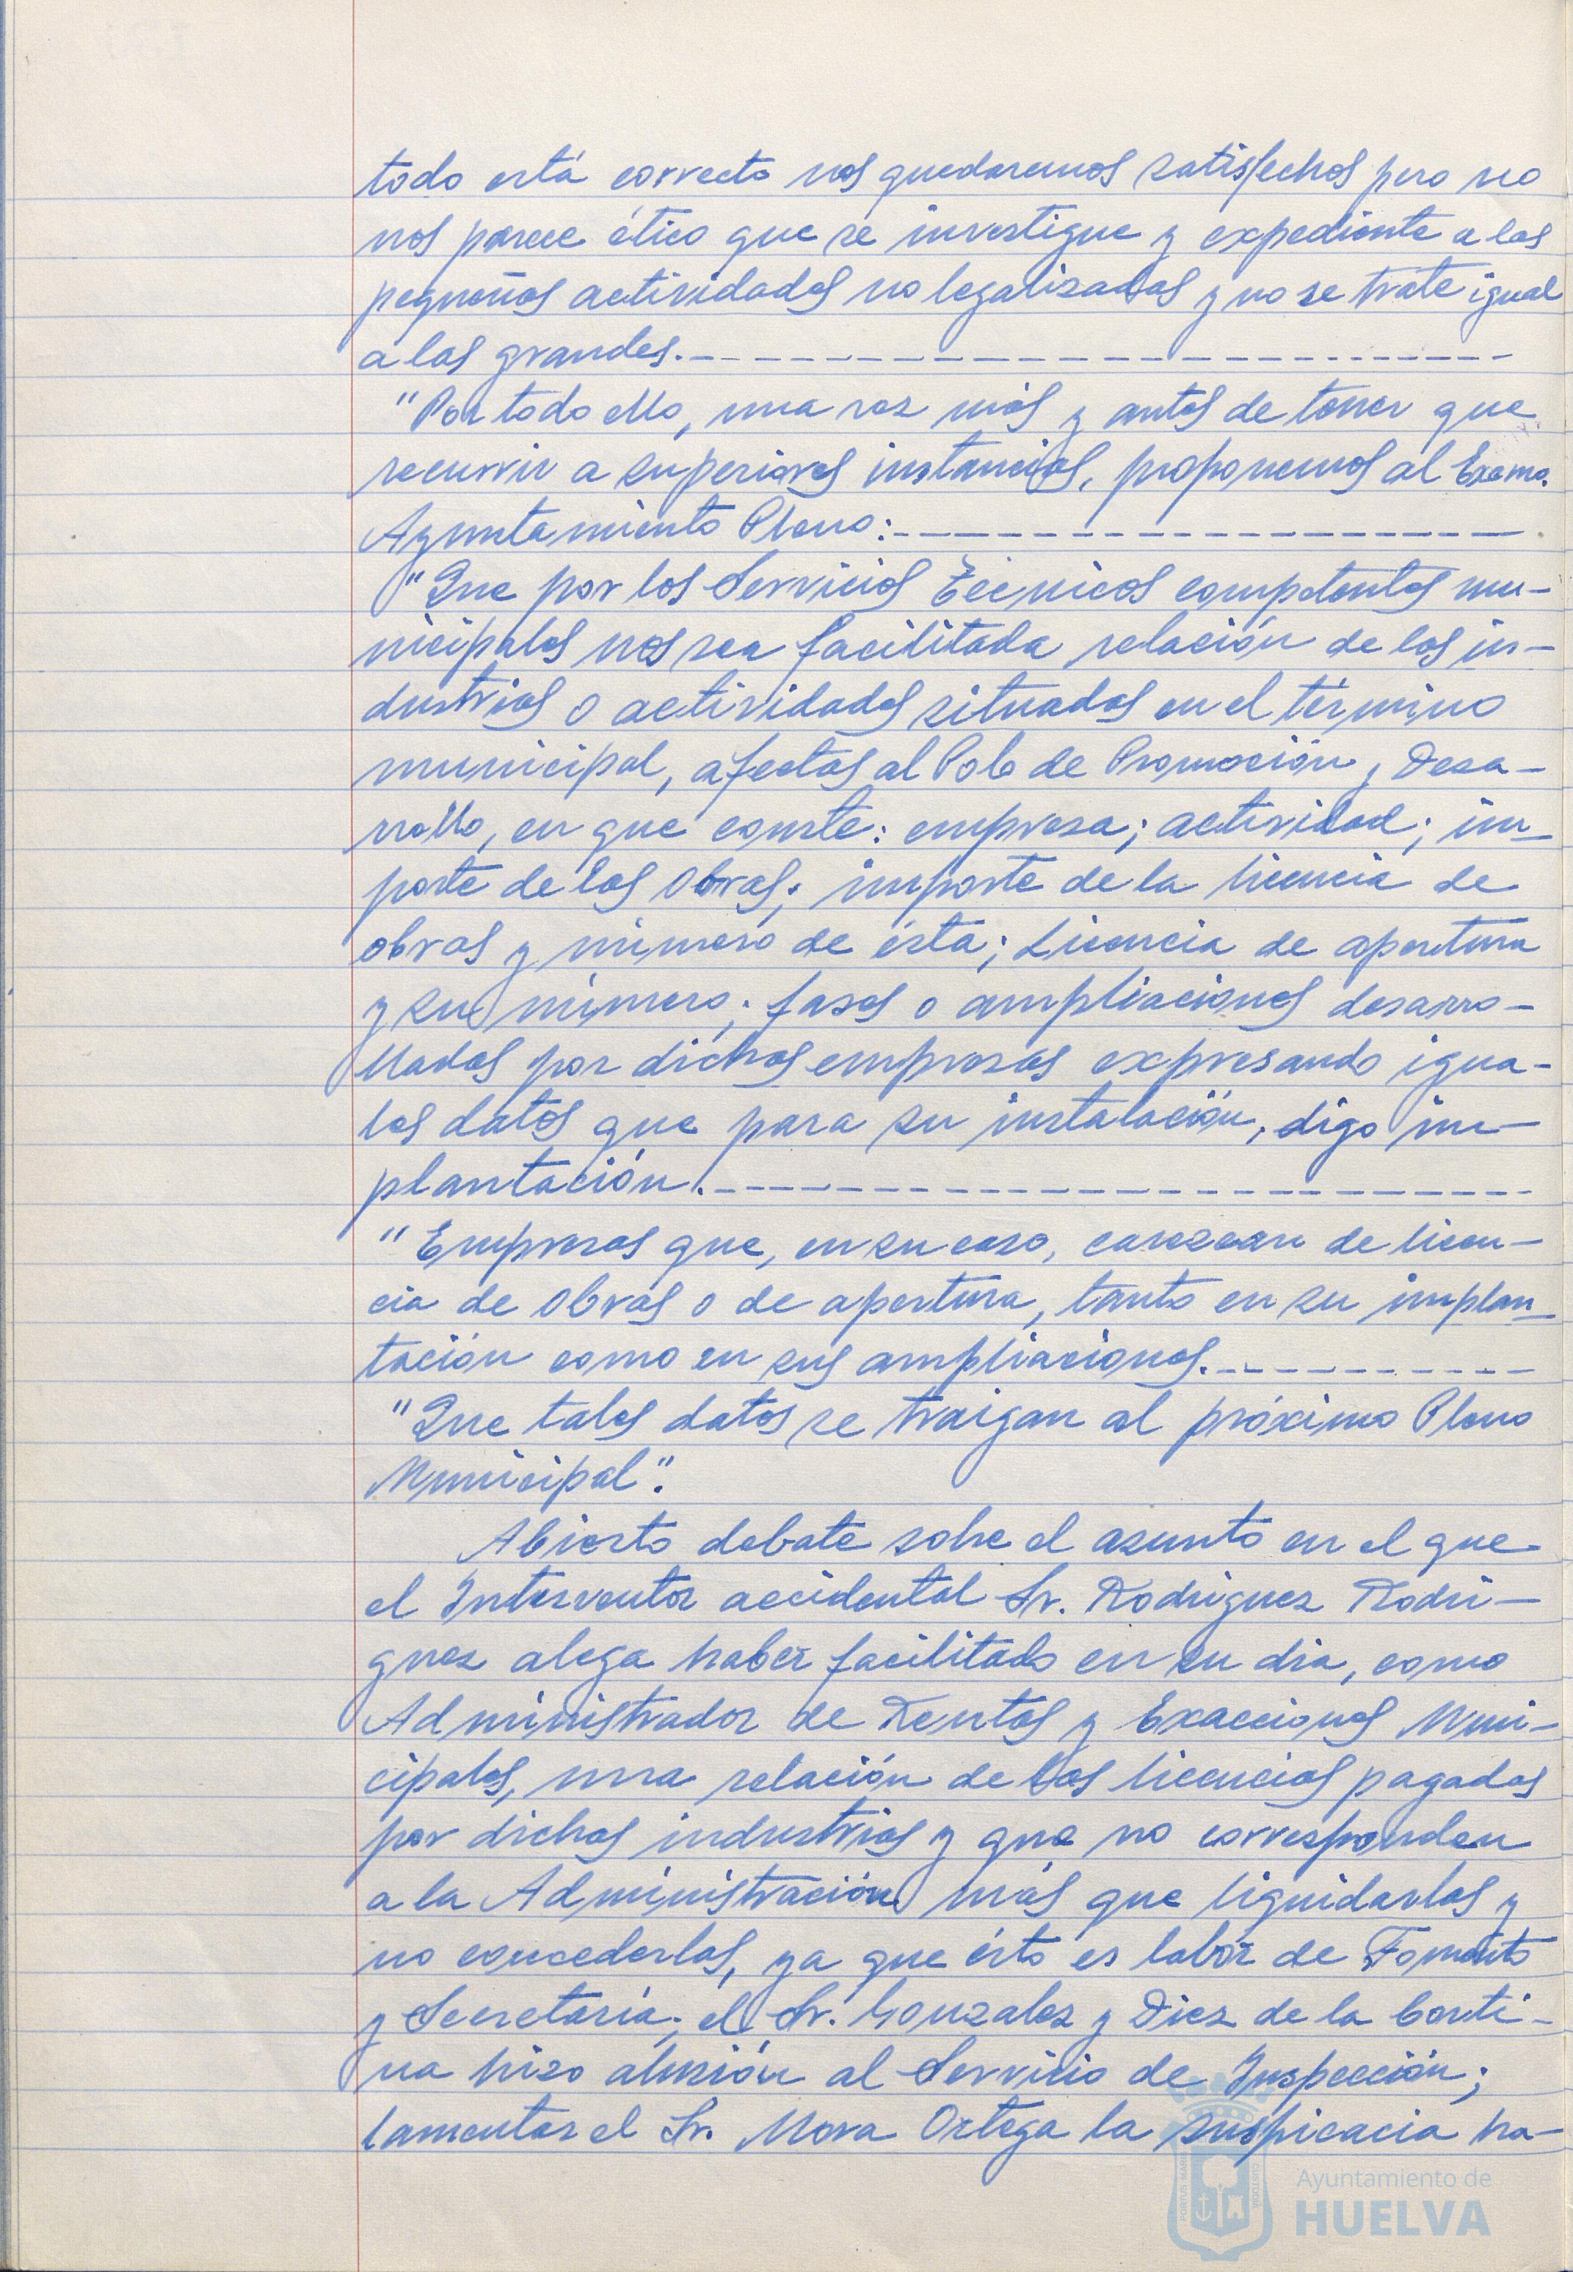 todo está correcto nos quedaremos satisfechos pero no
nos parece ético que se investigue y expediente a las
pequeñas actividades no legalizadas y no se trate igual
a las grandes.-------------------------
"Por todo ello, una vez más y antes de tener que
recurrir a superiores instancias, proponemos al Excmo.
Ayuntamiento Pleno:-------------------
"Que por los Servicios Técnicos competentes mu-
nicipales nos sea facilitada relación de las in-
dustrias o actividades situadas en el término
municipal, afectas al Polo de Promoción y Desa-
rrollo, en que conste: empresa; actividad; im-
porte de las obras; importe de la licencia de
obras y número de ésta; Licencia de apertura
y su número; fases o ampliaciones desarro-
lladas por dichas empresas expresando igua-
les datos que para su instalación, digo im-
plantación.------------------------
"Empresas que, en su caso, carezcan de licen-
cia de obras o de apertura, tanto en su implan-
tación como en sus ampliaciones.----------
"Que tales datos se traigan al próximo Pleno
Municipal".
Abierto debate sobre el asunto en el que
el Interventor accidental Sr. Rodriguez Rodri-
guez alega haber facilitado en su dia, como
Administrador de Rentas y Exacciones Muni-
cipales, una relación de las licencias pagadas
por dichas industrias y que no corresponden
a la Administración más que liquidarlas y
no concederlas, ya que ésto es labor de Fomento
y Secretaría; el Sr. Gonzalez y Diez de la Corti-
na hizo alusión al Servicio de Inspección;
lamentar el Sr. Mora Ortega la suspicacia ha-
Ayuntamiento de
HUELVA